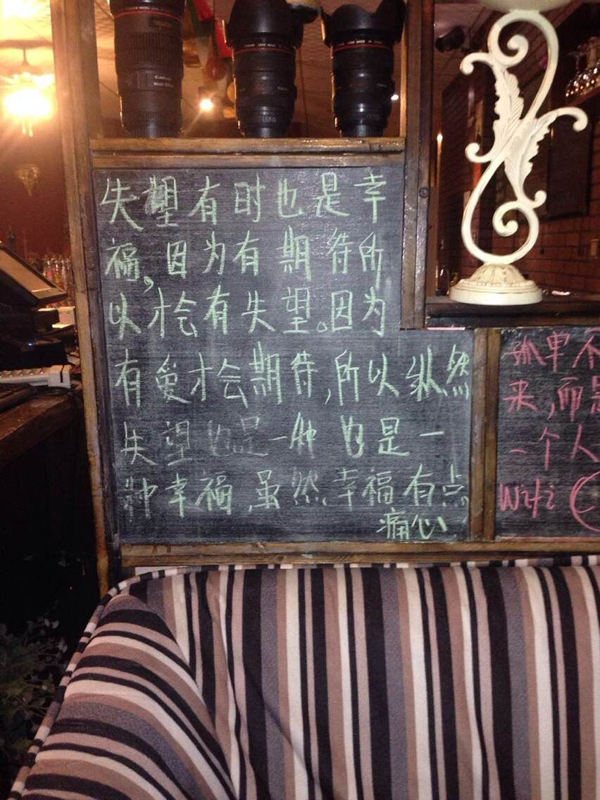 失望有时也是幸
福,因为有期待所
以才会有失望。因为
有爱才会期待,所以纵然
失望也是一种也是一
种幸福,虽然幸福有点
痛心
孤单不
来,而是
一个人
Wifi